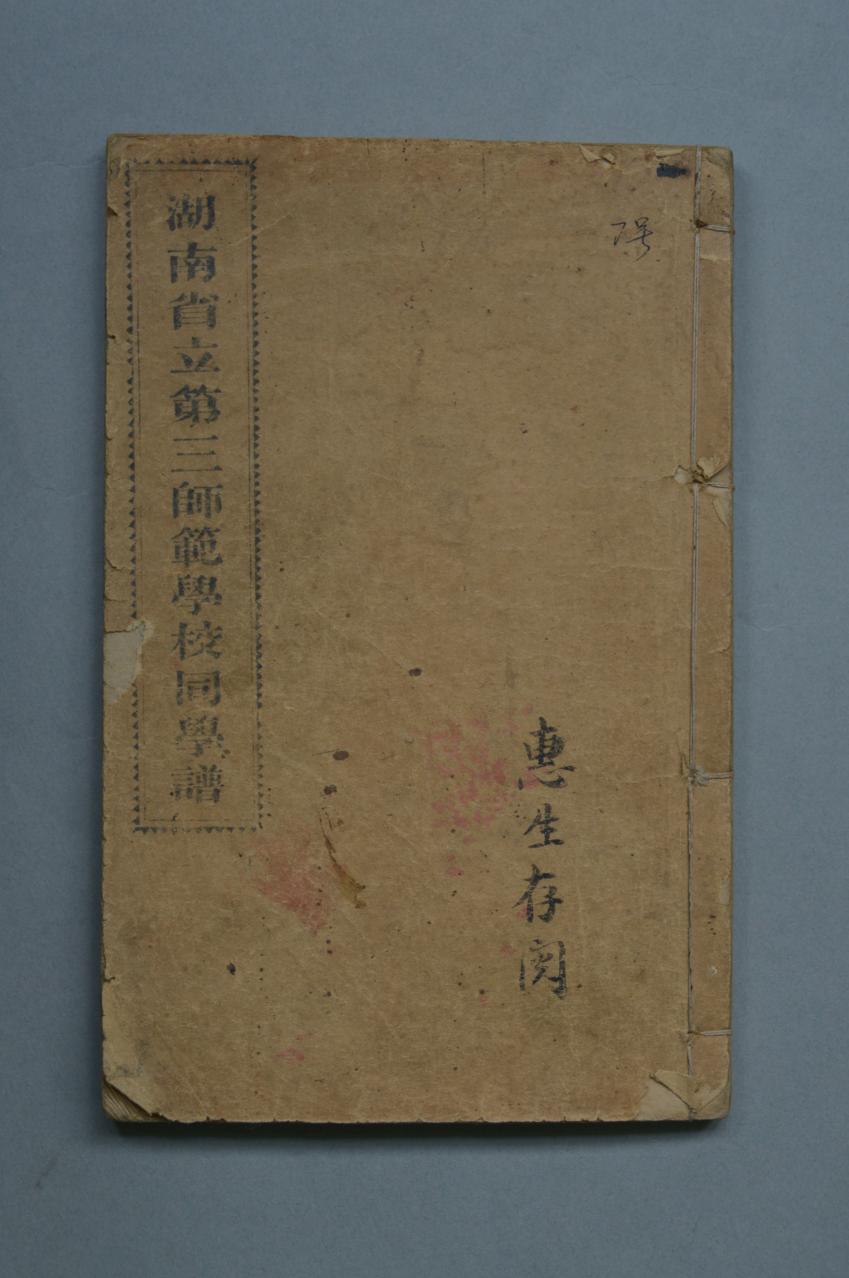 湖南省立第三師範學校同學譜
惠生存阅